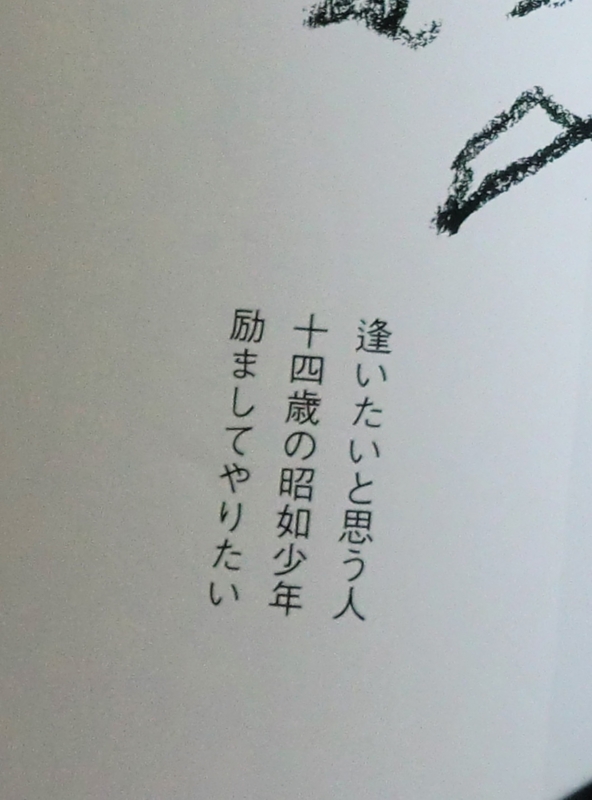 逢いたいと思う人
十四歳の昭如少年
励ましてやりたい